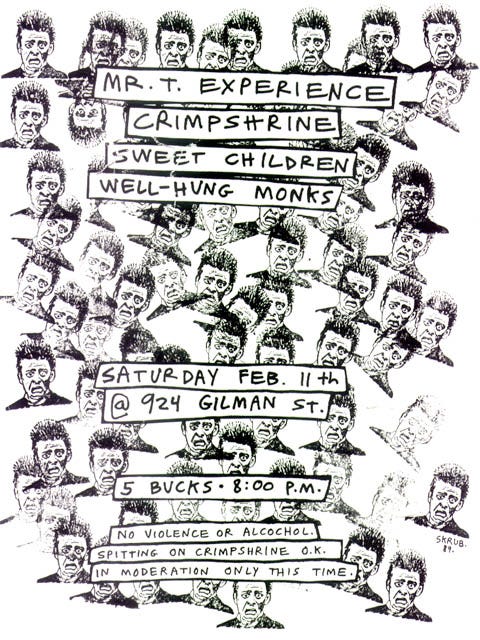 MR. T. EXPERIENCE
CRIMPSHRINE
SWEET CHILDREN
WELL-HUNG MONKS
SATURDAY FEB. 11th
@ 924 GILMAN ST.
5 BUCKS · 8:00 P.M.
NO VIOLENCE OR ALCOCHOL.
SPITTING ON CRIMPSHRINE O.K.
IN MODERATION ONLY THIS TIME.
SKRUB.
89.